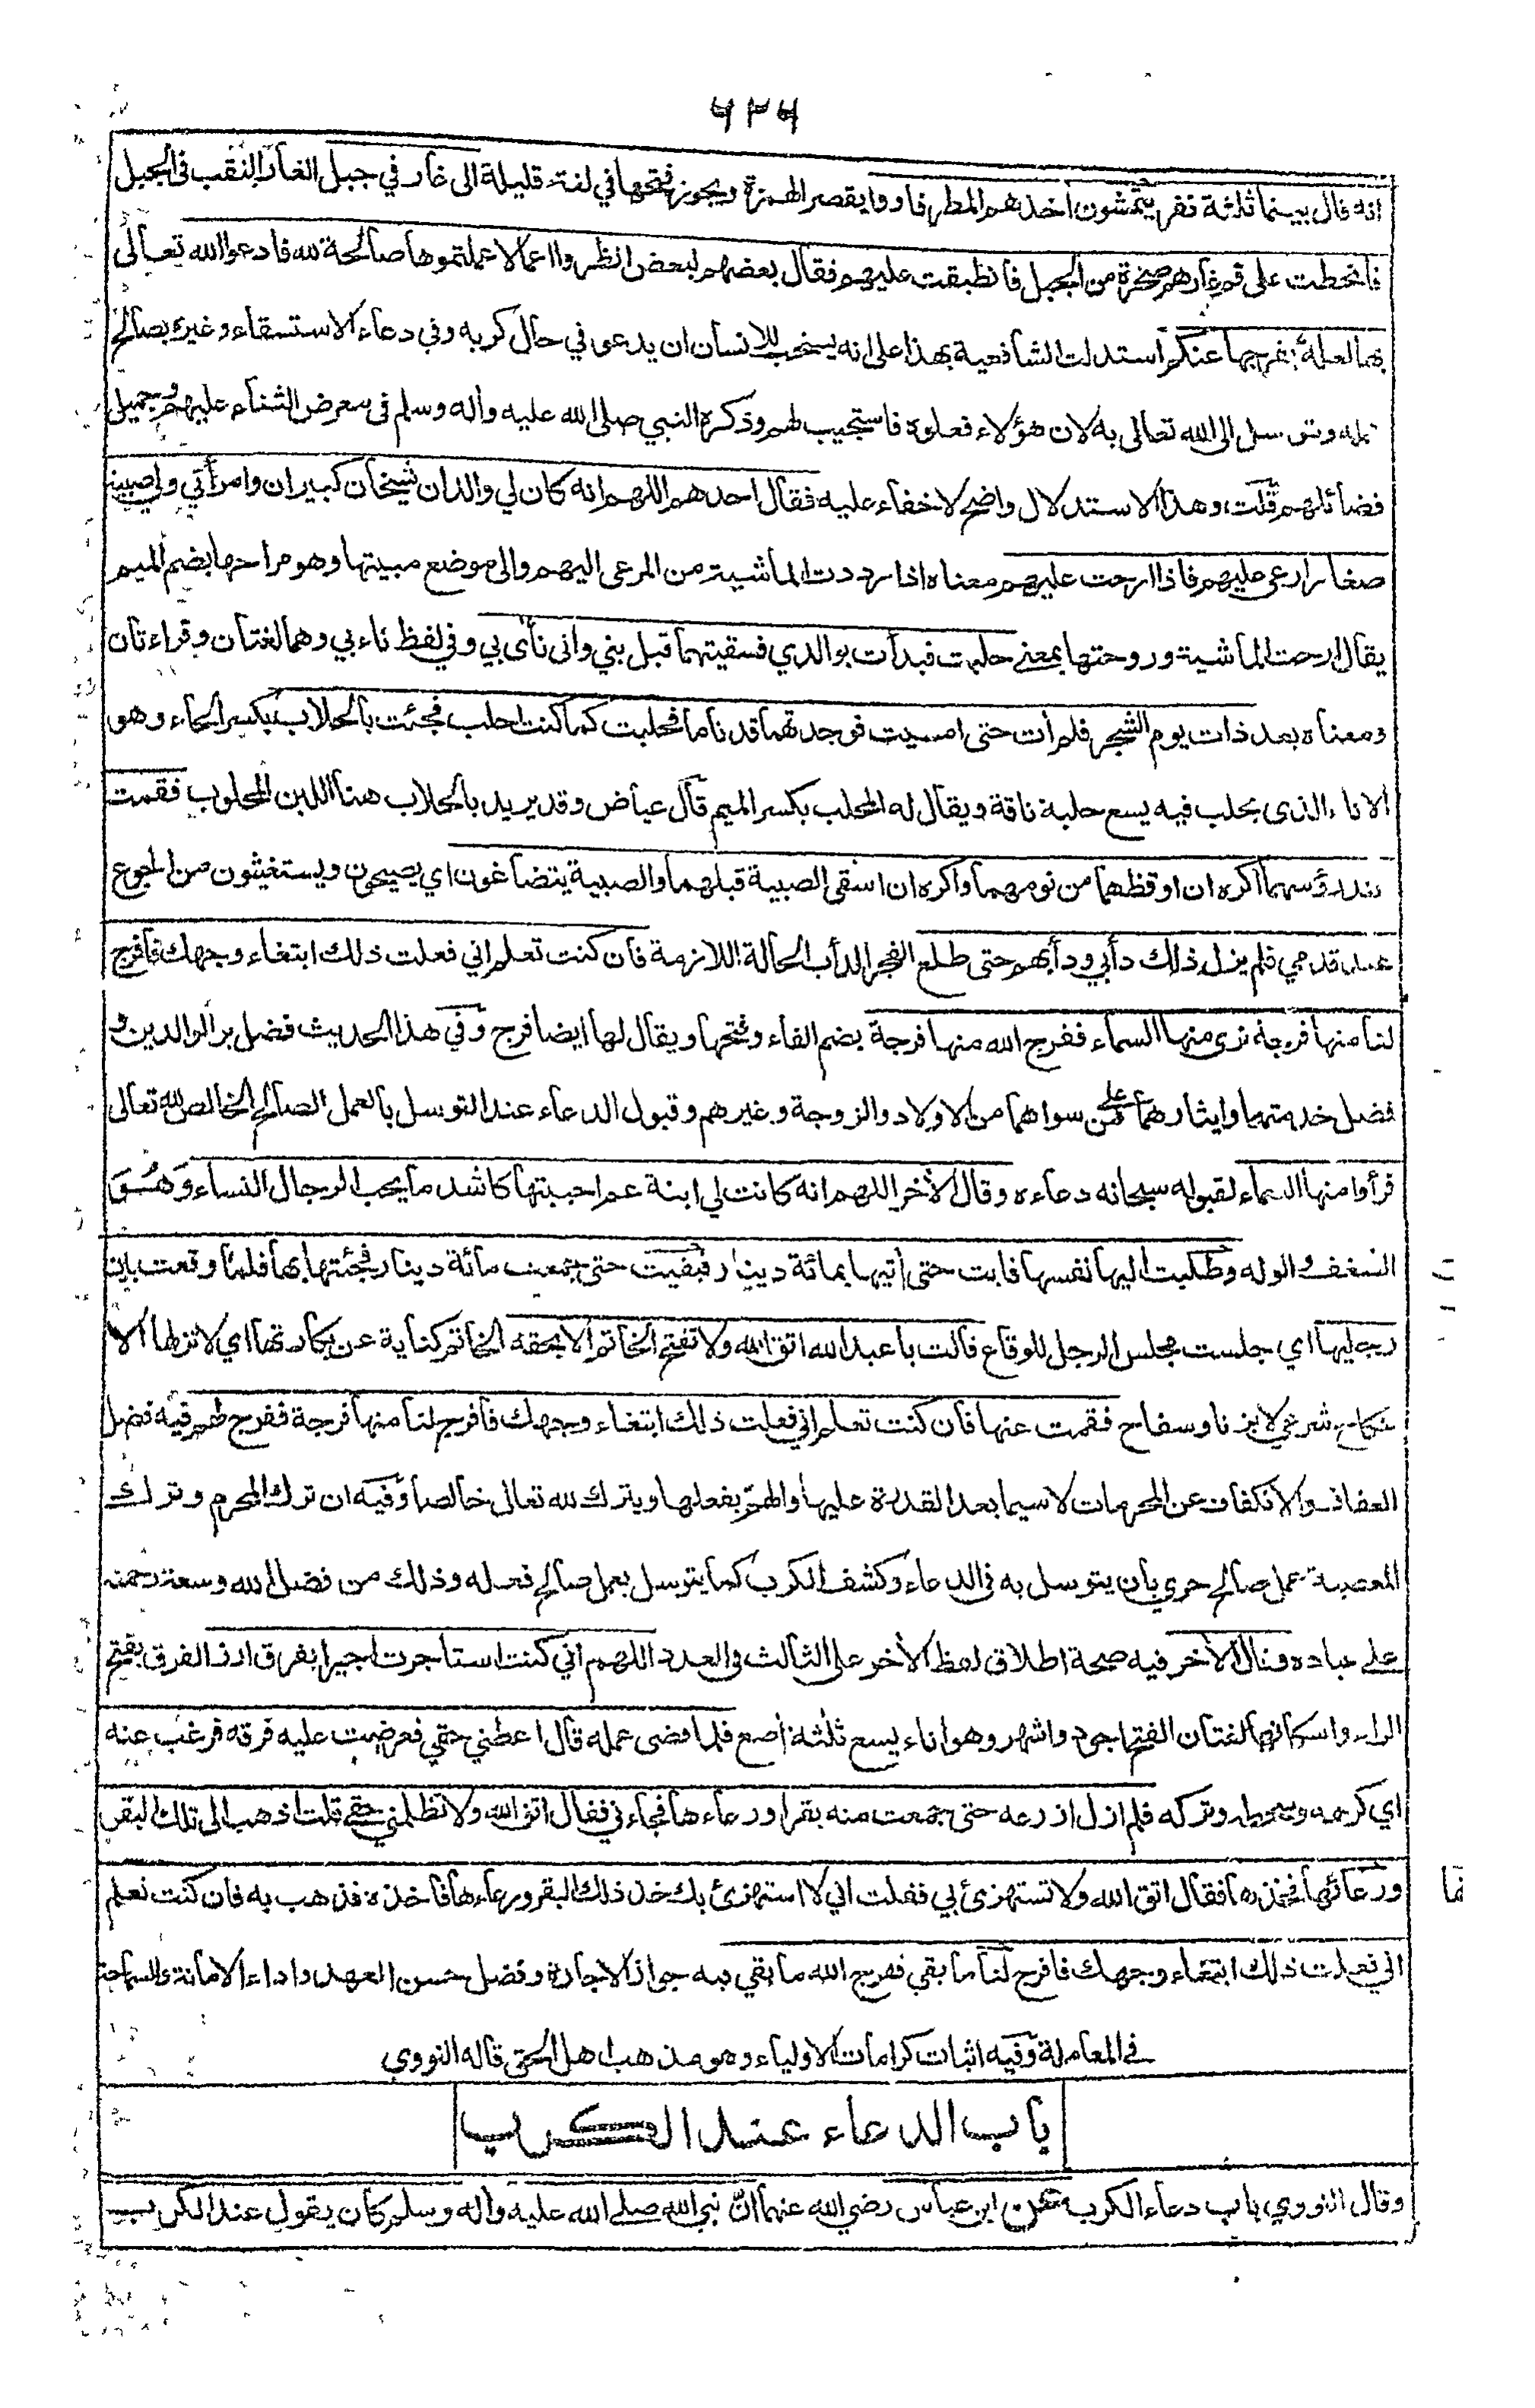 ٦٣٦
انه قال بينما ثلثة نفر يتمشون اخذهم المطر فاووا يقصر الهمزة ويجوز فتحها في لغة قليلة الى غار في جبل الغار النقب في الجبل
فانحطت على فم غارهم صخرة من الجبل فانطبقت عليهم فقال بعضهم لبعض انظروا اعمالا عملتموها صالحة لله فادعوا الله تعالى
بها لعله يفرجها عنكم استدلت الشافعية بهذا على انه يستحب للانسان ان يدعو في حال كربه وفي دعاء الاستسقاء وغيره بصالح
عمله ويتوسل الى الله تعالى به لان هؤلاء فعلوه فاستجيب لهم وذكره النبي صلى الله عليه واله وسلم في معرض الثناء عليهم وجميل
فضائلهم قلت وهذا الاستدلال واضح لا خفاء عليه فقال احدهم اللهم انه كان لي والدان شيخان كبيران وامرأتي ولي صبية
صغار ارعى عليهم فاذا ارحت عليهم معناه اذا رددت الماشية من المرعى اليهم والى موضع مبيتها وهو مراحها بضم الميم
يقال ارحت الماشية وروحتها بمعنى حلبت فبدأت بوالدي فسقيتهما قبل بني وانى نأى بي وفي لفظ ناء بي وهما لغتان وقراءتان
ومعناه بعد ذات يوم الشجر فلم أت حتى امسيت فوجدتهما قد ناما فحلبت كما كنت احلب فجئت بالحلاب بكسر الحاء وهو
الاناء الذي يحلب فيه يسع حلبة ناقة ويقال له المحلب بكسر الميم قال عياض وقد يريد بالحلاب هنا اللبن المحلوب فقمت
عند رؤسهما اكره ان اوقظهما من نومهما واكره ان اسقي الصبية قبلهما والصبية يتضاغون اي يصيحون ويستغيثون من الجوع
عند قدمي فلم يزل ذلك دأبي ودأبهم حتى طلع الفجر الدأب الحالة اللازمة فان كنت تعلم اني فعلت ذلك ابتغاء وجهك فافرج
لنا منها فرجة نرى منها السماء ففرج الله منها فرجة بضم الفاء وفتحها ويقال لها ايضا فرج وفي هذا الحديث فضل بر الوالدين و
فضل خدمتهما وايثارهما على من سواهما من الاولاد والزوجة وغيرهم وقبول الدعاء عند التوسل بالعمل الصالح الخالص لله تعالى
فرأوا منها السماء لقبوله سبحانه دعاءه وقال الأخر اللهم انه كانت لي ابنة عم احببتها كاشد ما يحب الرجال النساء وَهُوَ
الشغف والوله وطلبت اليها نفسها فابت حتى اتيها بمائة دينار فبغيت حتى جمعت مائة دينار فجئتها بها فلما وقعت بين
رجليها اي جلست مجلس الرجل للوقاع قالت يا عبد الله اتق الله ولا تفتح الخاتم الا بحقه الخاتم كناية عن بكارتها اي لا تزلها الا
بنكاح شرعي لا بزنا وسفاح فقمت عنها فان كنت تعلم اني فعلت ذلك ابتغاء وجهك فافرج لنا منها فرجة ففرج لهم فيه فضل
العفاف والانكفاف عن المحرمات لا سيما بعد القدرة عليها والهم بفعلها ويترك لله تعالى خالصا وفيه ان ترك المحرم وترك
المعصية عمل صالح حري بان يتوسل به في الدعاء وكشف الكرب كما يتوسل بعمل صالح فعله وذلك من فضل الله وسعة رحمته
على عباده وقال الأخر فيه صحة اطلاق لفظ الأخر على الثالث في العدد اللهم اني كنت استأجرت اجيرا بفرق ارز الفرق بفتح
الراء واسكانها لغتان الفتح اجود واشهر وهو اناء يسع ثلثة أصع فلما قضى عمله قال اعطني حقي فعرضت عليه فرقه فرغب عنه
اي كرهه وسخطه وتركه فلم ازل ازرعه حتى جمعت منه بقرا ورعاءها فجاءني فقال اتق الله ولا تظلمني حقي قلت اذهب الى تلك البقر
ورعائها فخذها فقال اتق الله ولا تستهزئ بي فقلت اني لا استهزئ بك خذ ذلك البقر ورعاءها فاخذه فذهب به فان كنت تعلم
اني فعلت ذلك ابتغاء وجهك فافرج لنا ما بقي ففرج الله ما بقي فيه جواز الاجارة وفضل حسن العهد واداء الامانة والسماحة
في المعاملة وفيه اثبات كرامات الاولياء وهو مذهب اهل الحق قاله النووي
باب الدعاء عند الكرب
وقال النووي باب دعاء الكرب عن ابن عباس رضي الله عنهما انّ نبي الله صلى الله عليه واله وسلم كان يقول عند الكرب